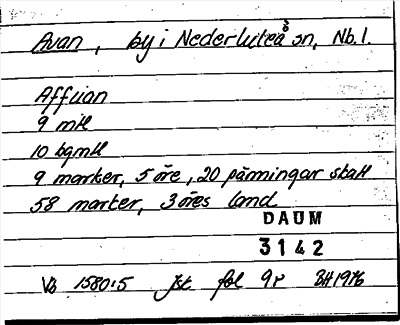 Avan, by i Nederluleå sn, Nb.l.
Affuan
9 mtl
10 bgmtl
9 marker, 5 öre, 20 pänningar skatt
58 marker, 3 öres land
DAUM
3142
Vb 1580:5 Jsk fol 9r BH 1976